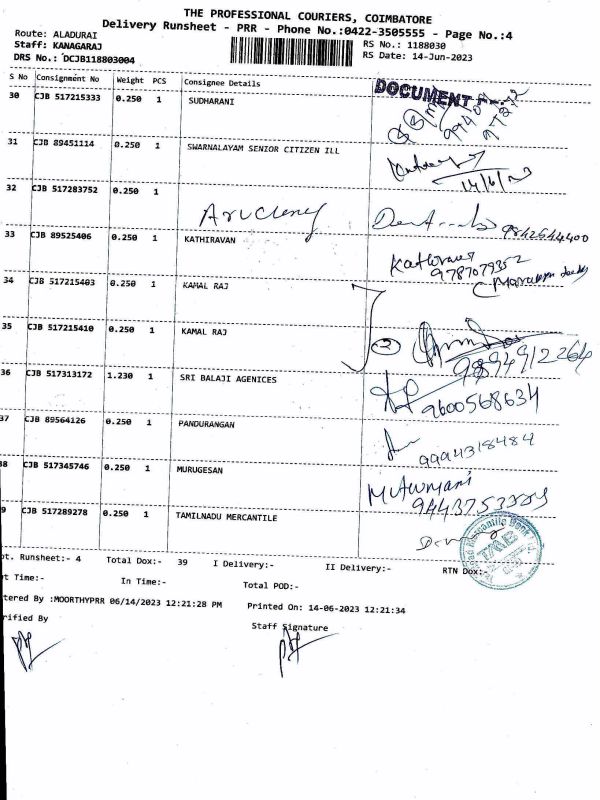 THE PROFESSIONAL COURIERS, COIMBATORE
Delivery Runsheet - PRR - Phone No.:0422-3505555 - Page No.:4
Route: ALADURAI
Staff: KANAGARAJ RS No.: 1188030
DRS No.: DCJB118803004 RS Date: 14-Jun-2023
S No Consignment No Weight PCS Consignee Details DOCUMENT
30 CJB 517215333 0.250 1 SUDHARANI
31 CJB 89451114 0.250 1 SWARNALAYAM SENIOR CITIZEN ILL
14/6/23
32 CJB 517283752 0.250 1
9842544400
33 CJB 89525406 0.250 1 KATHIRAVAN Kathiravan
9787079352
34 CJB 517215403 0.250 1 KAMAL RAJ
35 CJB 517215410 0.250 1 KAMAL RAJ 2
9894912264
36 CJB 517313172 1.230 1 SRI BALAJI AGENICES
9600568634
37 CJB 89564126 0.250 1 PANDURANGAN
9994318484
38 CJB 517345746 0.250 1 MURUGESAN
39 CJB 517289278 0.250 1 TAMILNADU MERCANTILE
pt. Runsheet:- 4 Total Dox:- 39 I Delivery:- II Delivery:- RTN Dox:-
t Time:- In Time:- Total POD:-
tered By :MOORTHYPRR 06/14/2023 12:21:28 PM Printed On: 14-06-2023 12:21:34
rified By Staff Signature